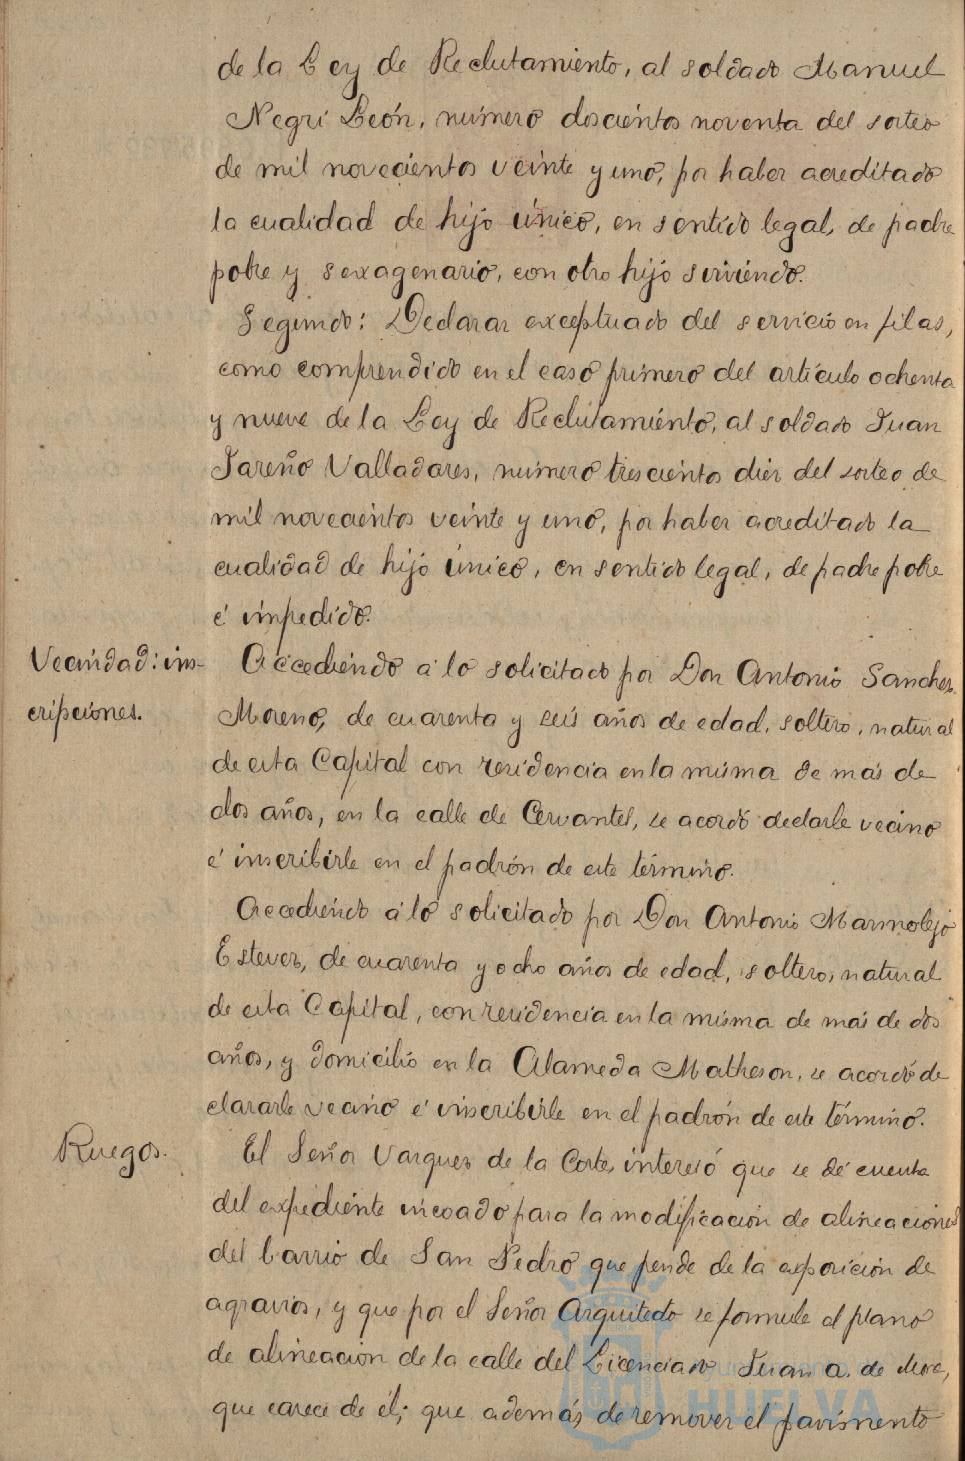 de la Ley de Reclutamiento, al soldado Manuel
Negri León, número doscientos noventa del sorteo
de mil novecientos veinte y uno, por haber acreditado
la cualidad de hijo único, en sentido legal, de padre
pobre y sexagenario, con otro hijo sirviendo.
Segundo: Declarar exceptuado del servicio en filas,
como comprendido en el caso primero del artículo ochenta
y nueve de la Ley de Reclutamiento, al soldado Juan
Jareño Valladares, número trescientos diez del sorteo de
mil novecientos veinte y uno, por haber acreditado la
cualidad de hijo único, en sentido legal, de padre pobre
é impedido.
Vecindad: ins-
cripciones.
Accediendo á lo solicitado por Don Antonio Sanchez
Moreno, de cuarenta y seis años de edad, soltero, natural
de esta Capital con residencia en la misma de más de
dos años, en la calle de Cervantes, se acordó declarle vecino
é inscribirle en el padrón de este término.
Accediendo á lo solicitado por Don Antonio Marmolejo
Estevez, de cuarenta y ocho años de edad, soltero, natural
de esta Capital, con residencia en la misma de más de dos
años, y domicilio en la Alameda Matheson, se acordó de
clararle vecino é inscribirle en el padrón de este término.
Ruegos.
El Señor Vazquez de la Corte, interesó que se dé cuenta
del expediente incoado para la modificación de alineaciones
del barrio de San Pedro que pende de la exposición de
agravios, y que por el Señor Arquitecto se formule el plano
de alineación de la calle del Licenciado Juan A. de Mora,
que carece de él; que además de remover el pavimento
Ayuntamiento de
HUELVA